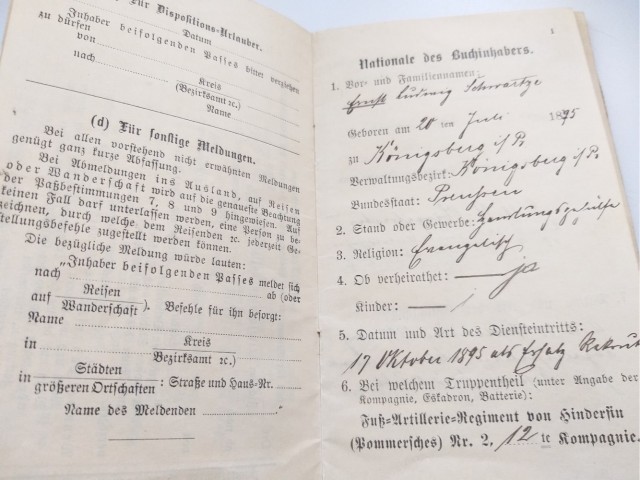 Für Dispositions-Urlauber.
Datum
Inhaber beifolgenden Passes bittet verziehen
zu dürfen
von
nach
Kreis
(Bezirksamt ꝛc.)
Name
(d) Für sonstige Meldungen.
Bei allen vorstehend nicht erwähnten Meldungen
genügt ganz kurze Abfassung.
Bei Abmeldungen ins Ausland, auf Reisen
oder Wanderschaft wird auf die genaueste Beachtung
der Paßbestimmungen 7, 8 und 9 hingewiesen. Auf
keinen Fall darf unterlassen werden, eine Person zu be-
zeichnen, durch welche dem Reisenden ꝛc. jederzeit Ge-
stellungsbefehle zugestellt werden können.
Die bezügliche Meldung würde lauten:
„Inhaber beifolgenden Passes meldet sich
nach ab (oder
auf Reisen
Wanderschaft). Befehle für ihn besorgt:
Name
in Kreis
Bezirksamt ꝛc.)
in Städten
größeren Ortschaften: Straße und Haus-Nr.
Name des Meldenden ."
1
Nationale des Buchinhabers.
1. Vor- und Familiennamen:
Ernst Ludwig Schwartze
Geboren am 20 ten Juli 1875
zu Königsberg i/Pr
Verwaltungsbezirk: Königsberg i/Pr
Bundesstaat: Preussen
2. Stand oder Gewerbe: Handlungsgehülfe
3. Religion: Evangelisch
4. Ob verheirathet: ja
Kinder:
5. Datum und Art des Diensteintritts:
17 Oktober 1895 als Ersatz Rekrut
6. Bei welchem Truppentheil (unter Angabe der
Kompagnie, Eskadron, Batterie):
Fuß-Artillerie-Regiment von Hindersin
(Pommersches) Nr. 2, 12 te Kompagnie.